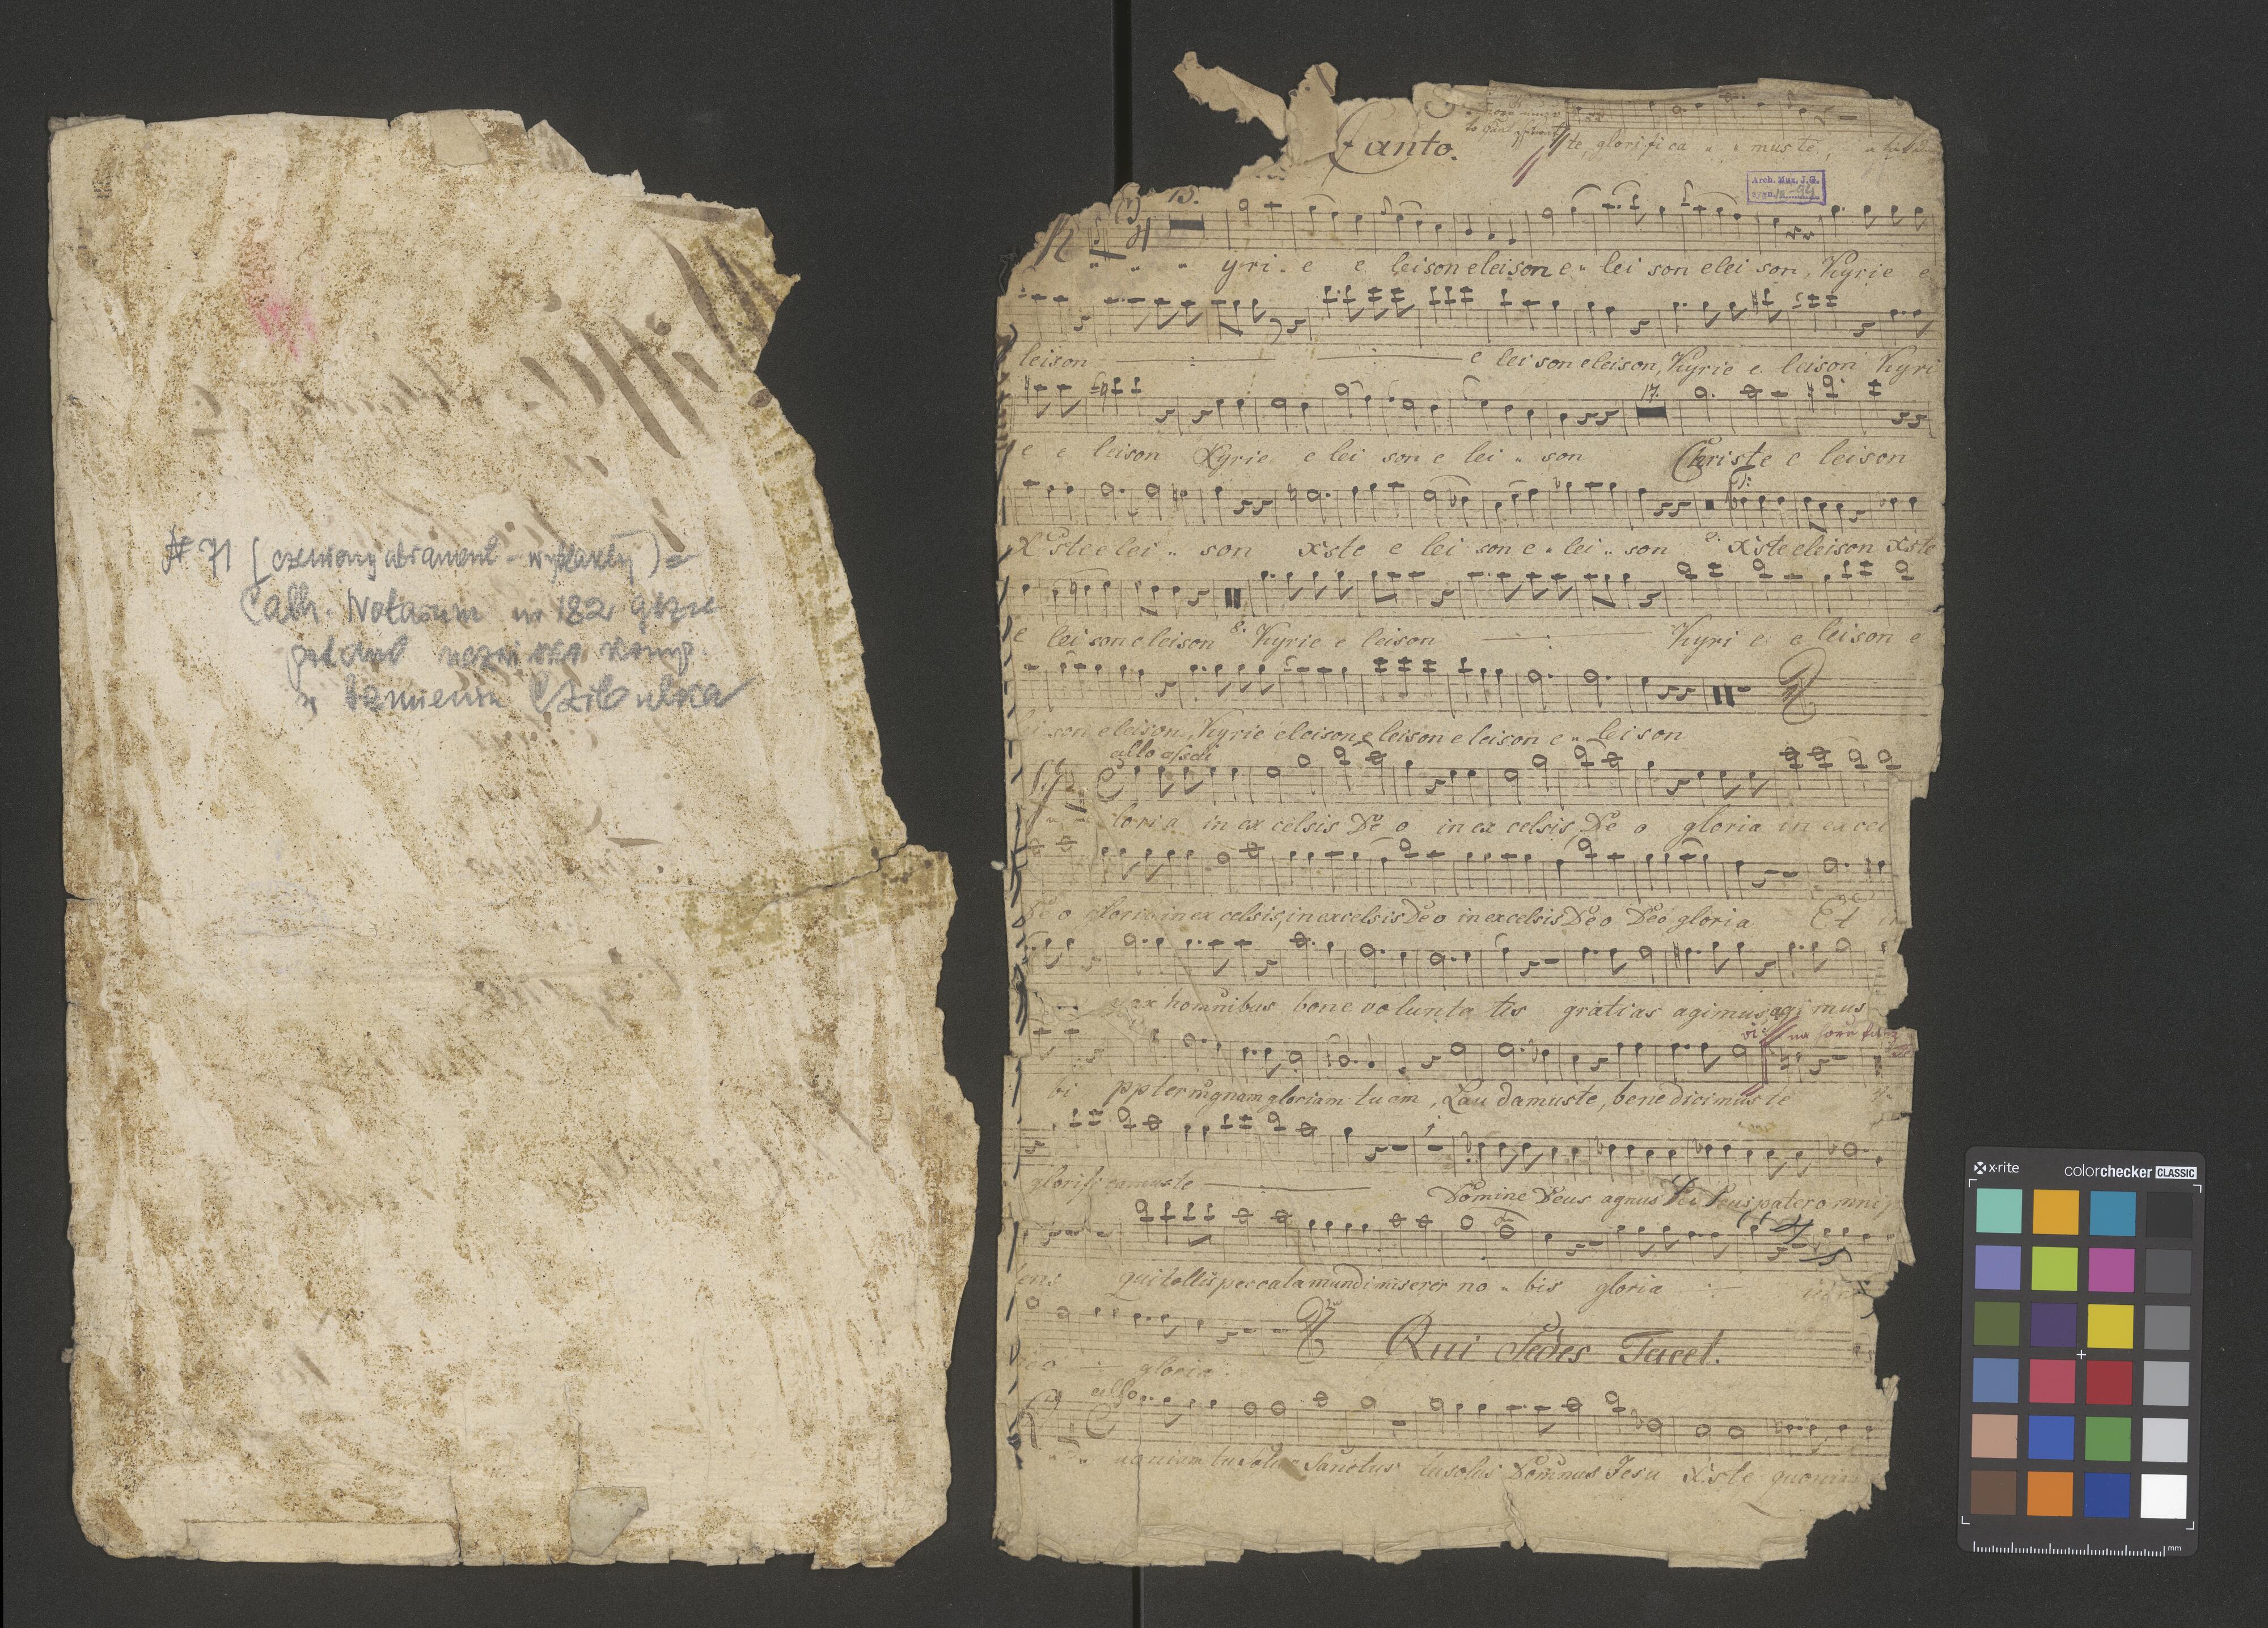 № 71 (czerwony atrament - wyblakły) =
Cath. Notarum nr 182 gdzie
podano nazwisko komp.
z Czibulka
Canto.
te, glorificamus te,
Arch. Muz. J.G.
13.
K yri e e leison eleison e lei son elei son, Kyrie e
leison e lei son eleison, Kyrie e leison Kyri
17.
e e leison Kyrie e lei son e lei son Christe e leison
X'ste e lei son X'ste e lei son e lei son 2. X'ste eleison X'ste
e lei son e leison 8. Kyrie e leison Kyri e e leison e
lei son eleison, Kyrie eleison e leison e leison e leison
allo assai
Gloria in ex celsis De o in ex celsis De o gloria in excel
De o gloria in ex celsis, in excelsis De o in excelsis Deo Deo gloria Et in
pax hominibus bone volunta tis gratias agimus agi mus
bi ppter mgnam gloriam tuam, Lau damus te, bene dicimus te
glorificamus te Domine Deus agnus Dei Deus pater omnip
tens qui tollis peccata mundi miserer no bis gloria
o gloria.
Qui Sedes Tacet.
allo
Quoniam tu solus Sanctus tu solus Dominus Jesu X'ste quoniam
x·rite
colorchecker CLASSIC
mm